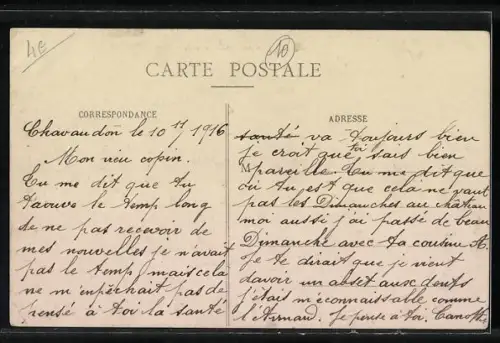 4€
10
CARTE POSTALE
CORRESPONDANCE
Chavandon le 10 11 1916
Mon vieu copin.
Tu me dit que tu
trouve le temp long
de ne pas recevoir de
mes nouvelles je n'avait
pas le temp mais cela
ne m'enpêchait pas de
pensé à toi la santé
ADRESSE
santé va toujours bien
je croit que toi sais bien
M pareille Tu me dit que
où tu est que cela ne vaut
pas les Dimanches au château
moi aussi j'ai passé de beau
Dimanche avec ta cousine A.
Je te dirait que je vient
davoir un abset aux dents
j'étais méconnaissable comme
l'Armand. Je pense à toi.